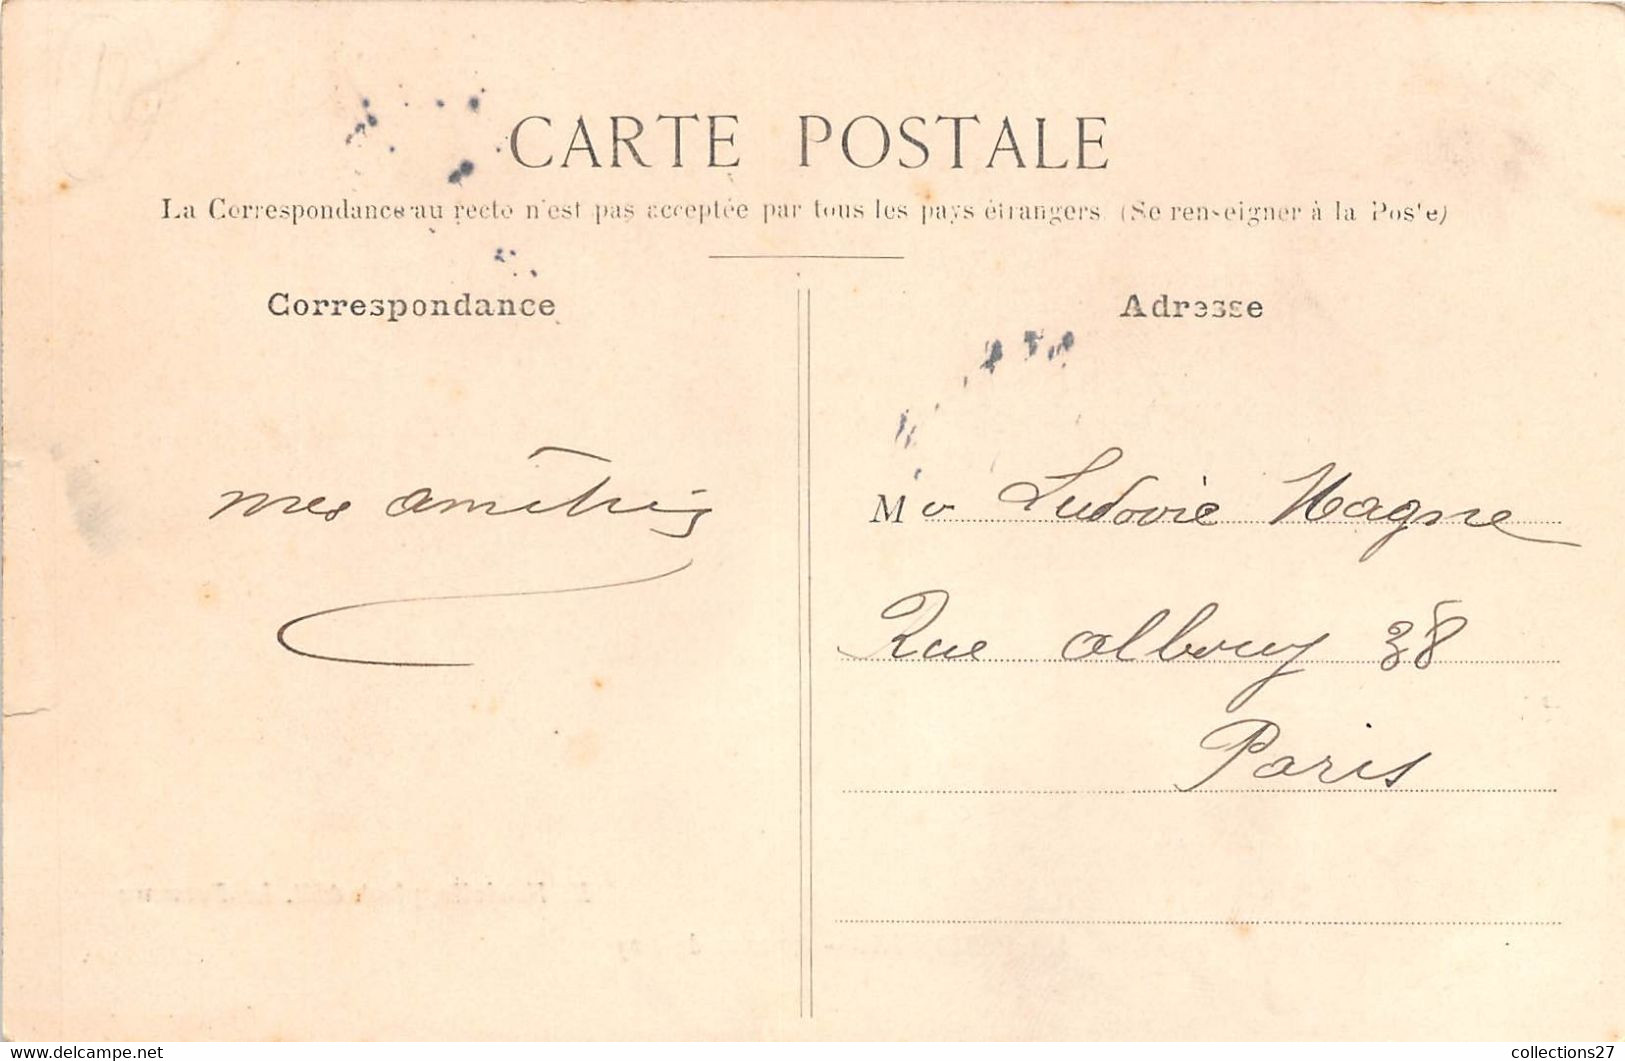 CARTE POSTALE
La Correspondance au recto n'est pas acceptée par tous les pays étrangers (Se renseigner à la Poste)
Correspondance
Adresse
mes amitiés
Mr Ludovic Magne
Rue Albouy 38
Paris
www.delcampe.net
collections27